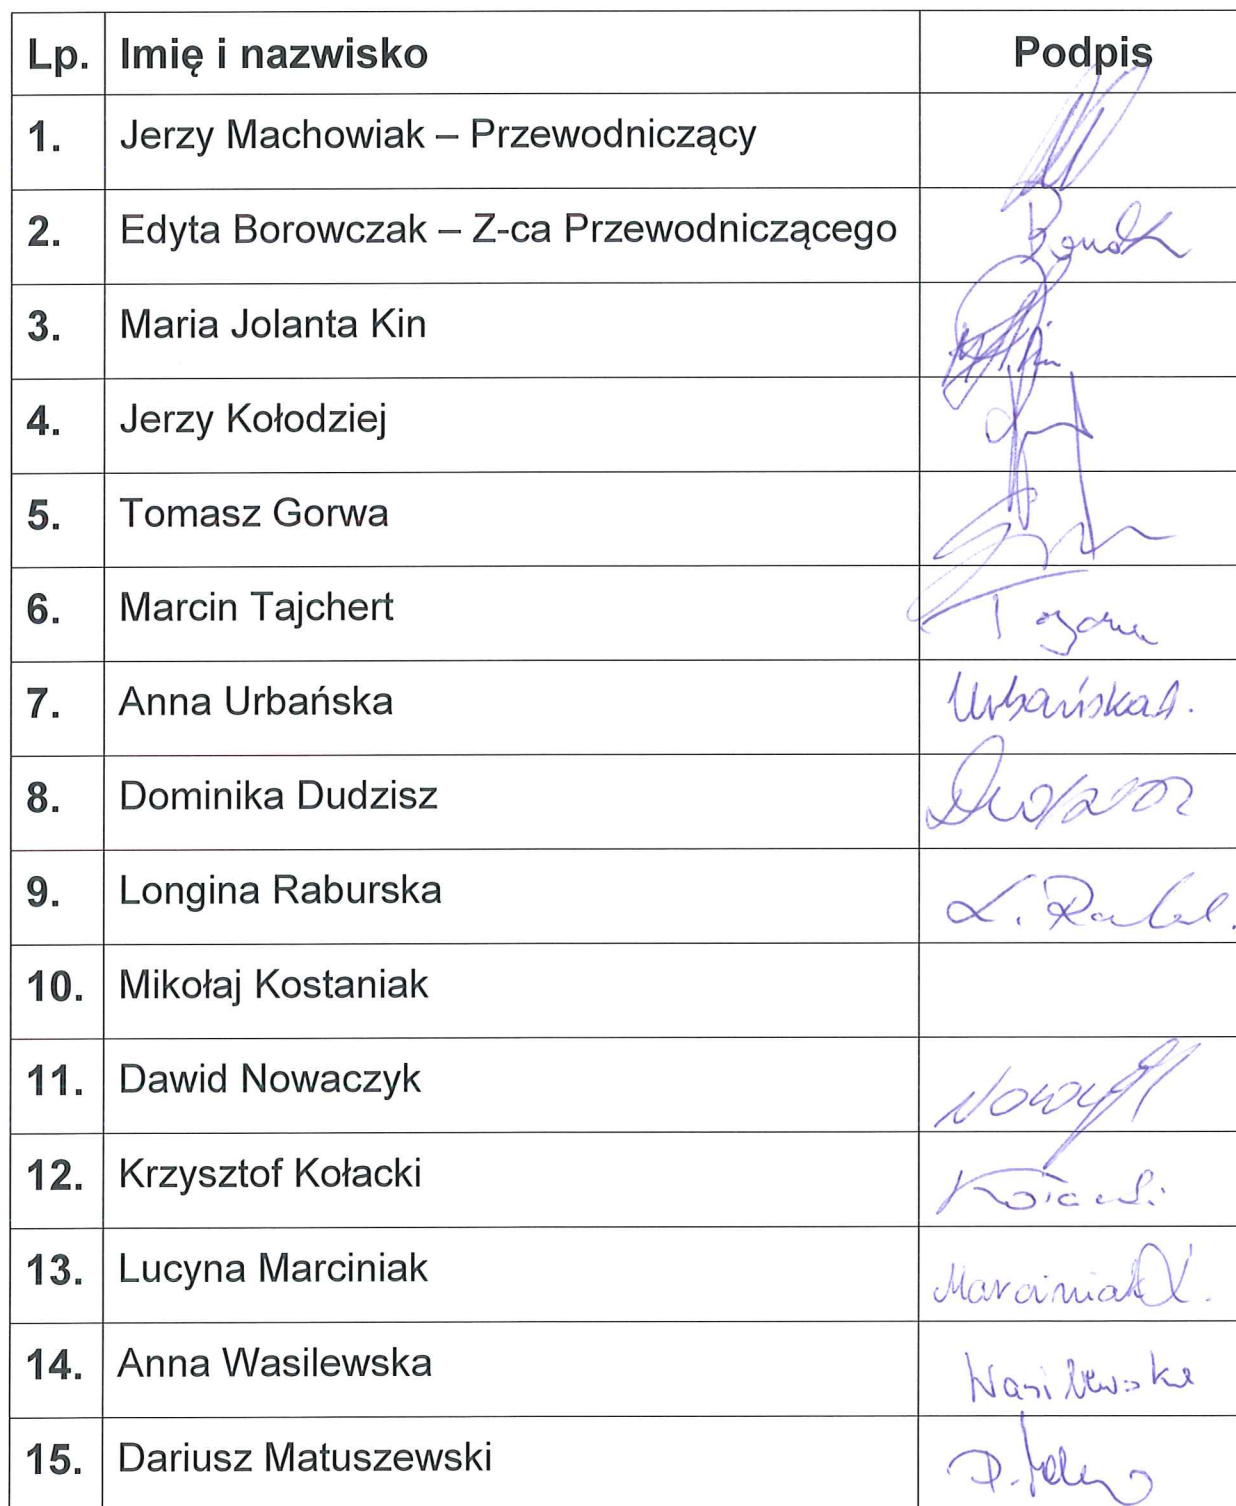 Lp. Imię i nazwisko Podpis
1. Jerzy Machowiak – Przewodniczący
2. Edyta Borowczak – Z-ca Przewodniczącego
3. Maria Jolanta Kin
4. Jerzy Kołodziej
5. Tomasz Gorwa
6. Marcin Tajchert
7. Anna Urbańska Urbańska A.
8. Dominika Dudzisz
9. Longina Raburska
10. Mikołaj Kostaniak
11. Dawid Nowaczyk
12. Krzysztof Kołacki Kołacki
13. Lucyna Marciniak Marciniak Ł.
14. Anna Wasilewska Wasilewska
15. Dariusz Matuszewski